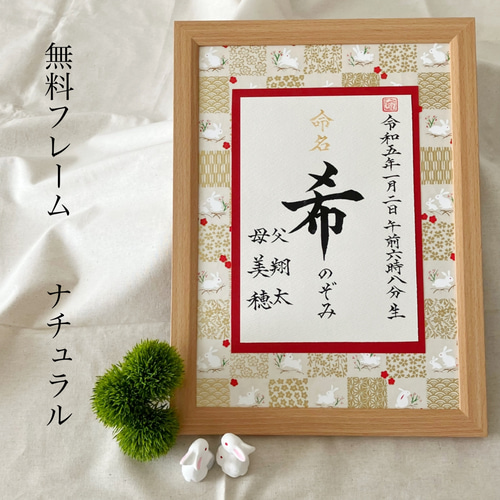 無料フレーム　ナチュラル
令和五年一月二日午前六時八分生
命名
希
のぞみ
父　翔太
母　美穂